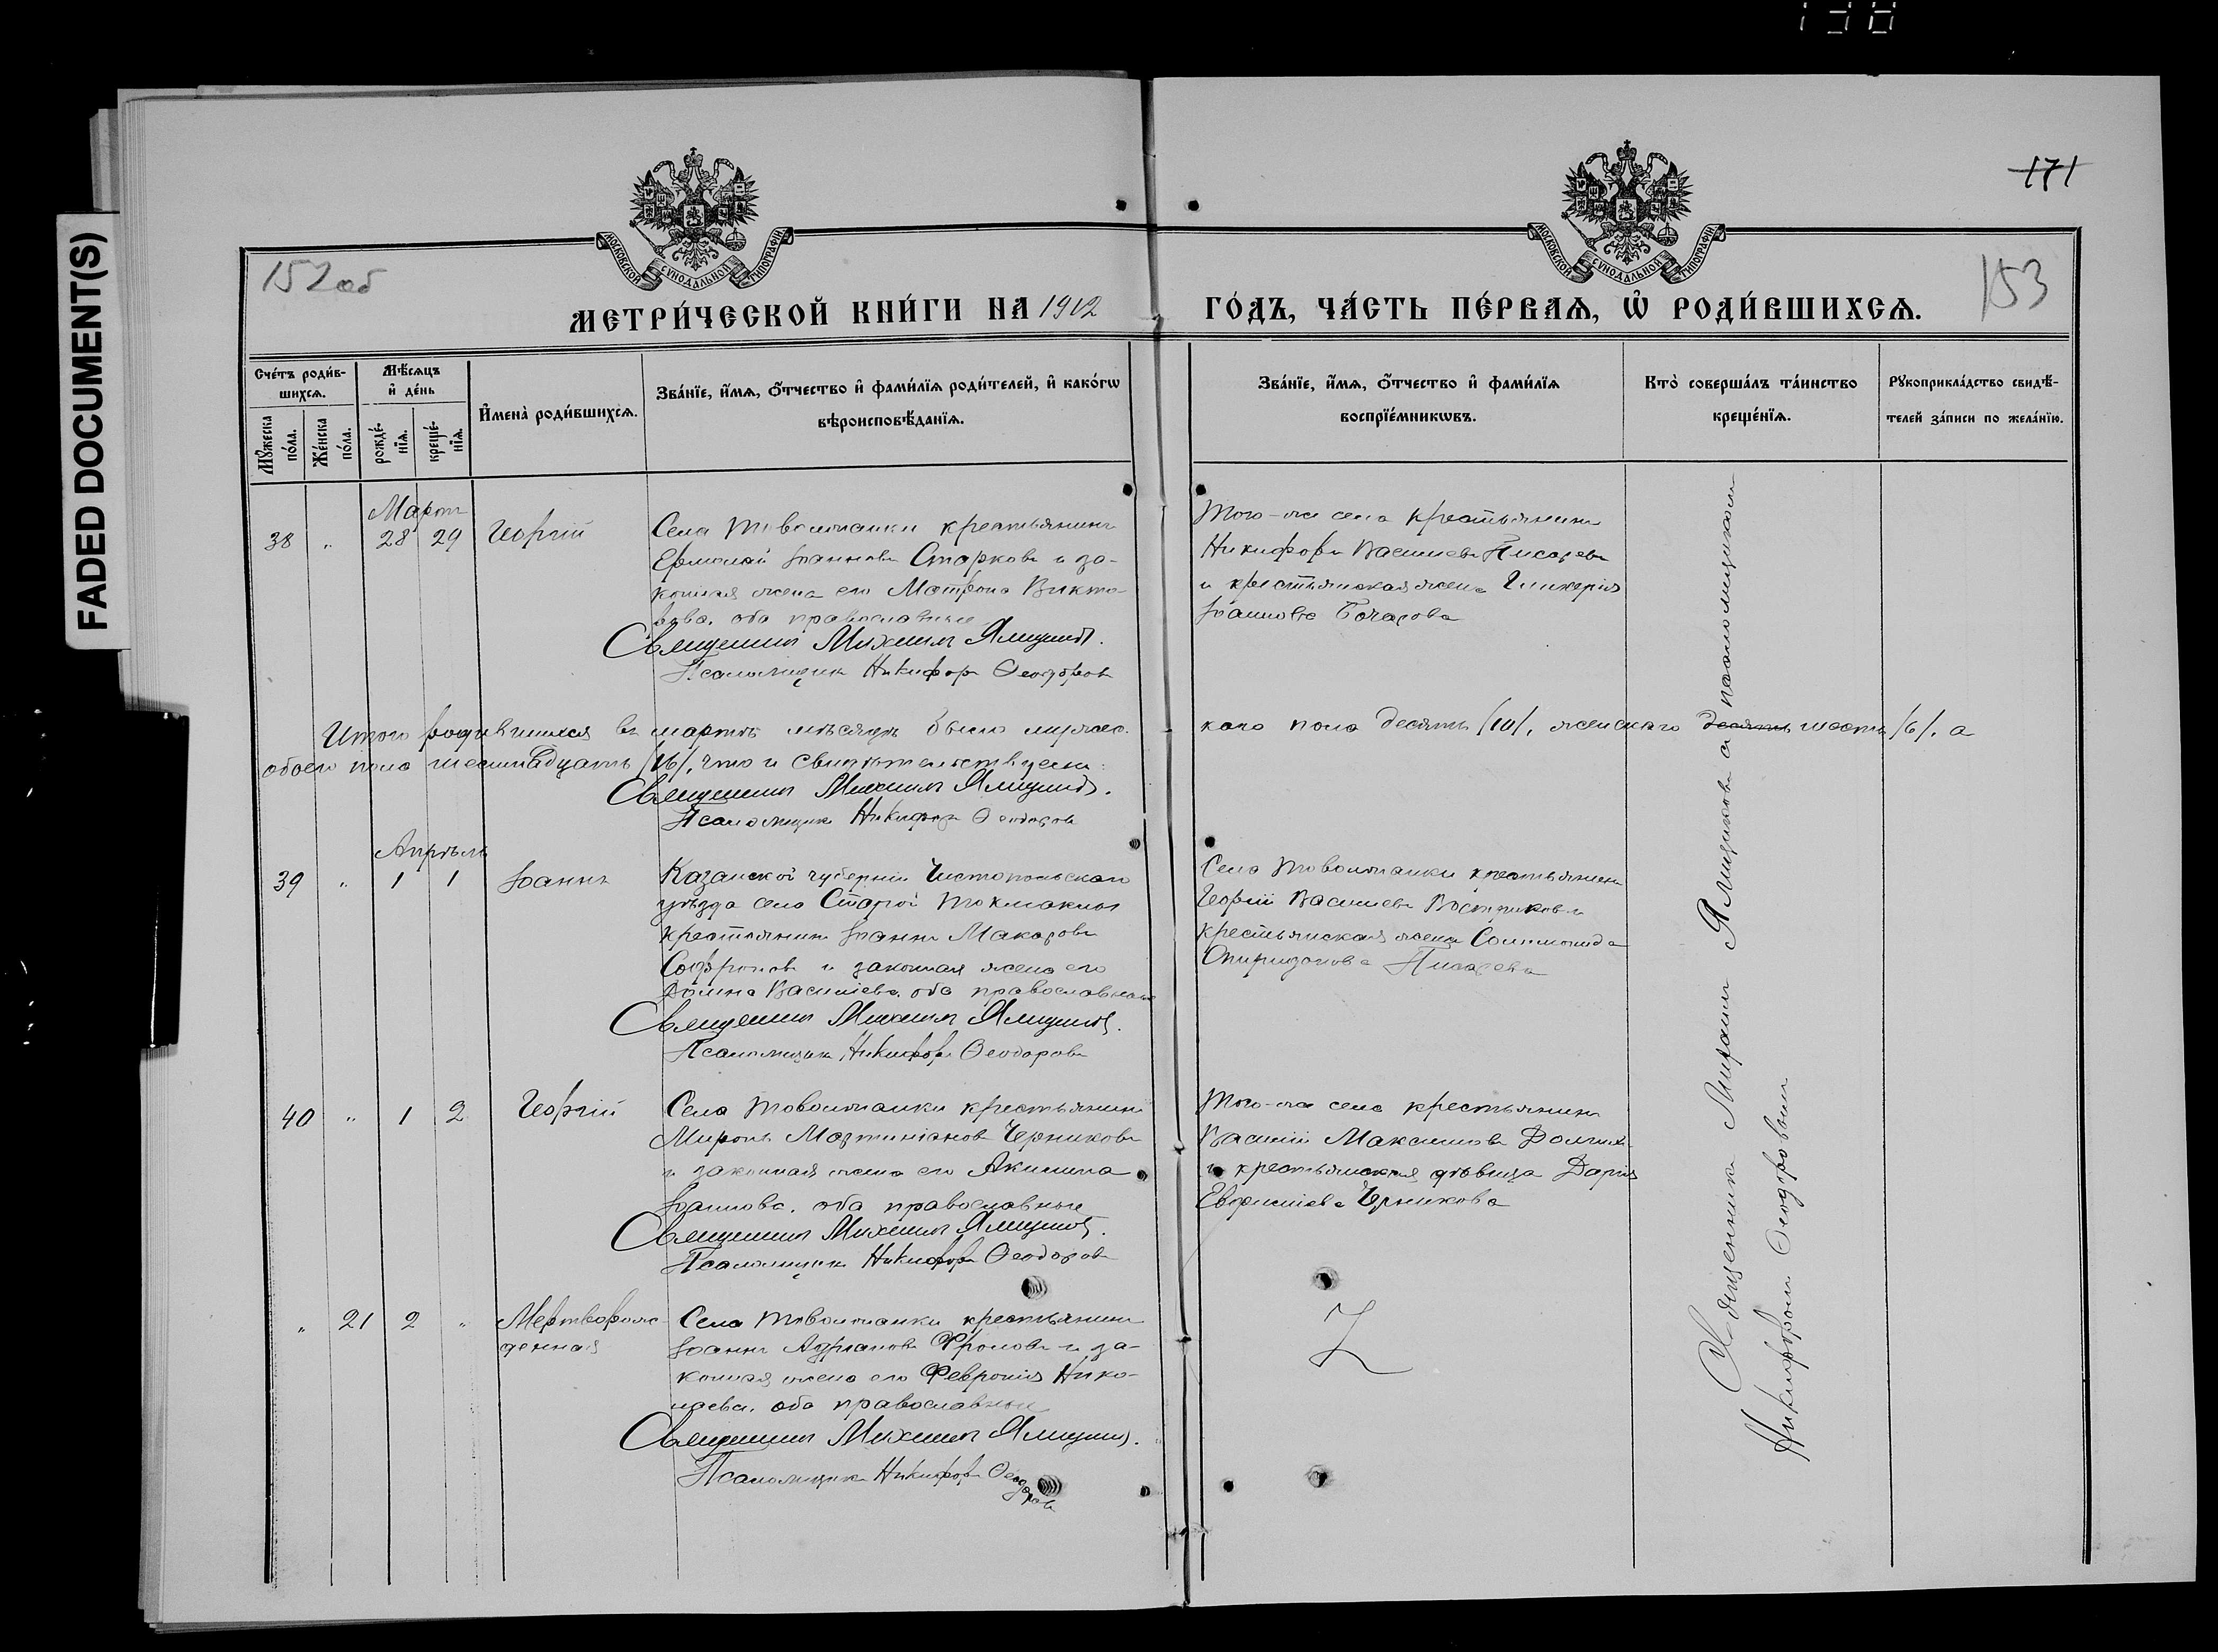 138
FADED DOCUMENT(S)
171
152 об
153
МОСКОВСКОЙ СѴНОДАЛЬНОЙ ТИПОГРАФІИ
МОСКОВСКОЙ СѴНОДАЛЬНОЙ ТИПОГРАФІИ
МЕТРИ́ЧЕСКОЙ КНИ́ГИ НА 1912 ГО́ДЪ, ЧА́СТЬ ПЕ́РВАѦ, Ѡ҆ РОДИ́ВШИХСѦ.
Сче́тъ роди́в-
шихсѧ.
Мꙋ́жеска по́ла.
Же́нска по́ла.
Мѣ́сѧцъ
и҆ де́нь
рожде́-
нїѧ.
креще́-
нїѧ.
И҆мена̀ роди́вшихсѧ.
Зва́нїе, и҆́мѧ, ѻ҆́тчество и҆ фами́лїѧ роди́телей, и҆ како́гѡ
вѣроисповѣ́данїѧ.
Зва́нїе, и҆́мѧ, ѻ҆́тчество и҆ фами́лїѧ
воспрїе́мникѡвъ.
Кто̀ соверша́лъ та́инство
креще́нїѧ.
Рꙋкоприкла́дство свидѣ́-
телей за́писи по жела́нїю.
Мартъ
38 " 28 29 Георгій
Села Товолжанки крестьянинъ
Ермолай Іоанновъ Старковъ и за-
конная жена его Матрона Викто-
рова, оба православные
Священникъ Михаилъ Ямщиковъ.
Псаломщикъ Никифоръ Ѳеодоровъ
Того-же села крестьянинъ
Никифоръ Василіевъ Писаревъ
и крестьянская жена Гликерія
Іоаннова Бочарова
Итого родившихся въ мартѣ мѣсяцѣ было мужес-
каго пола десять /10/, женскаго десять шесть /6/, а
обоего пола шестнадцать /16/, что и свидѣтельствуемъ:
Священникъ Михаилъ Ямщиковъ.
Псаломщикъ Никифоръ Ѳеодоровъ
Апрѣль
39 " 1 1 Іоаннъ
Казанской губерніи Чистопольскаго
уѣзда села Старой Токмаклы
крестьянинъ Іоаннъ Макаровъ
Софроновъ и законная жена его
Василіева, оба православные
Священникъ Михаилъ Ямщиковъ.
Псаломщикъ Никифоръ Ѳеодоровъ
Села Товолжанки крестьянинъ
Георгій Василіевъ Востриковъ и
крестьянская жена Соломонида
Спиридонова Писарева
40 " 1 2 Георгій
Села Товолжанки крестьянинъ
Миронъ Мартиніановъ Черниковъ
и законная жена его Акилина
Іоаннова, оба православные
Священникъ Михаилъ Ямщиковъ.
Псаломщикъ Никифоръ Ѳеодоровъ
Того-же села крестьянинъ
Василій Максимовъ Долгихъ
и крестьянская дѣвица Дарія
Евфиміева Черникова
" 21 2 " Мертворож-
денная
Села Товолжанки крестьянинъ
Іоаннъ Адріановъ Фроловъ и за-
конная жена его Февронія Нико-
лаева, оба православные
Священникъ Михаилъ Ямщиковъ.
Псаломщикъ Никифоръ Ѳеодоровъ
Z
Священникъ Михаилъ Ямщиковъ съ псаломщикомъ
Никифоромъ Ѳеодоровымъ